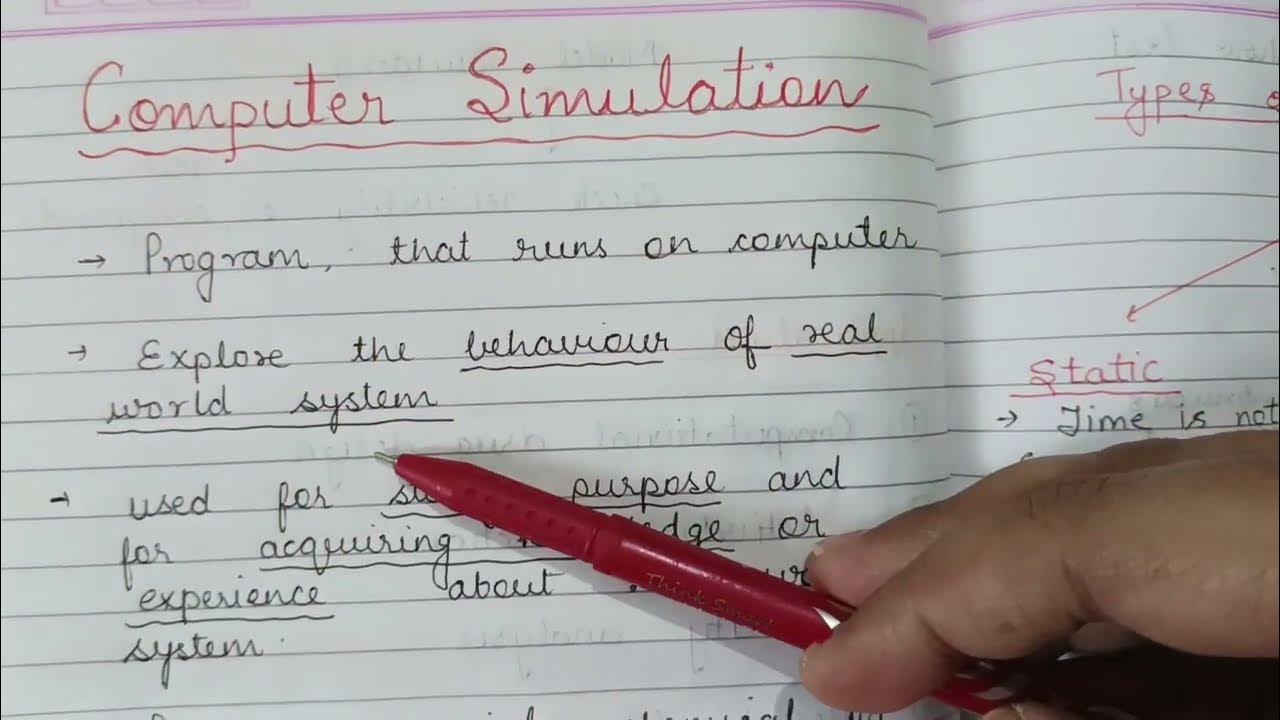 Computer Simulation
→ Program, that runs on computer
→ Explore the behaviour of real
world system
→ used for purpose and
for acquiring or
experience about
system.
Types
Static
→ Time is not
Think Smart